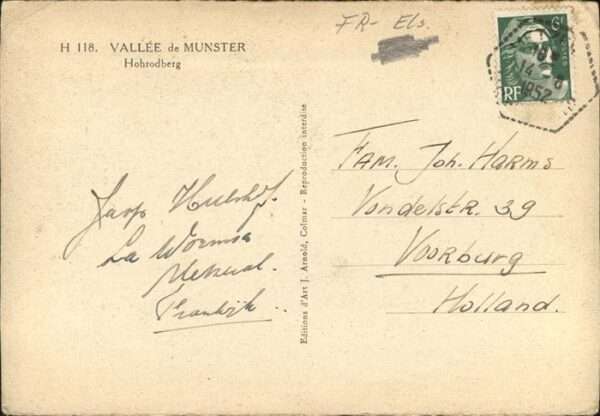 H 118. VALLÉE de MUNSTER
Hohrodberg
FR- Els.
RF
18
14 - 8
1952
Editions d'Art J. Arnold, Colmar - Reproduction interdite
FAM. Joh. HARMS
Vondelstr. 39
Voorburg
Holland.
Jaap Hulshof.
La Wormsa
Metzeral.
Frankrijk